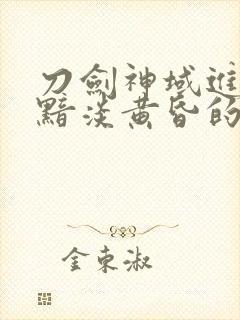 刀劍神域進
黯淡黃昏的
金東淑